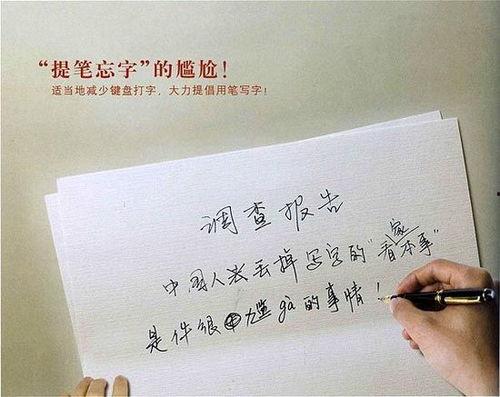 “提笔忘字”的尴尬！
适当地减少键盘打字，大力提倡用笔写字！
调查报告
中国人丢掉写字的“看家本事”
是件很尴gà的事情！